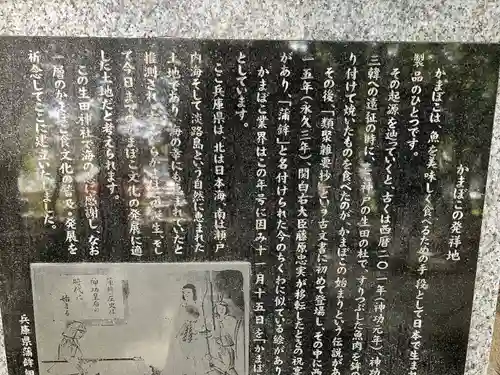 かまぼこの発祥地
かまぼこは、魚を美味しく食べるための手段として日本で生ま
製品のひとつです。
その起源を辿っていくと、古くは西暦二〇一年(神功元年)神功
三韓への遠征の時に、ここ神戸の生田の社で、すりつぶした魚肉を鉾
り付けて焼いたものを食べたのが、かまぼこの始まりという伝説があ
その後、「類聚雑要抄」という古文書に初めて登場し、その中に西
一五年(永久三年)、関白右大臣藤原忠実が移転したときの祝宴
があり、「蒲鉾」と名付けられた今のちくわに似ている絵があり
かまぼこ業界はこの年号に因み十一月十五日を「かまぼ
としています。
ここ兵庫県は、北は日本海、南は瀬戸
内海そして淡路島という自然に恵まれた
土地であり、海の幸にも恵まれていたと
推測され
て今日
した土地だと考えられます。
この生田神社で海の幸に感謝し、なお
一層のかまぼこ食文化の普及・発展を
祈念してここに建立いたしました。
兵庫県蒲鉾
蒲鉾在史は
神功皇后の
時代に
始まる